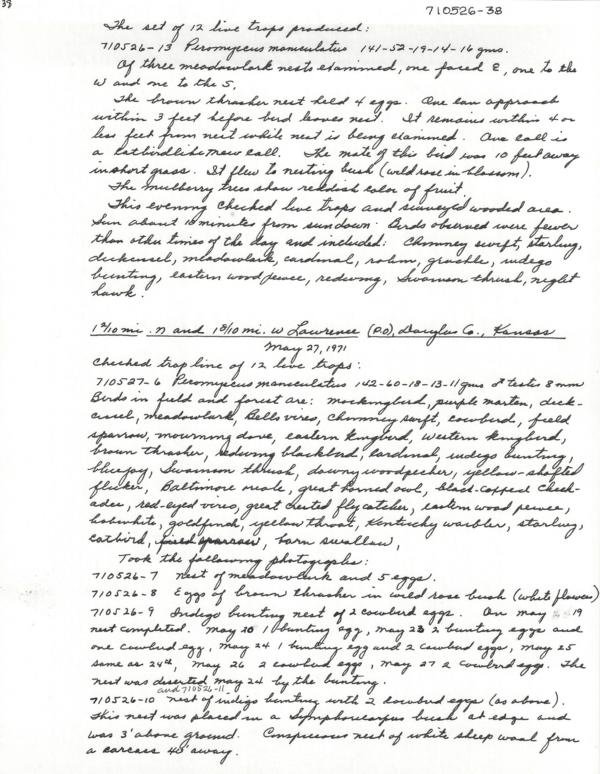 39
710526-38
The set of 12 live traps produced:
710526-13 Peromyscus maniculatus 141-52-19-14-16 gms.
Of three meadowlark nests examined, one faced E, one to the
W and one to the S.
The brown thrasher nest held 4 eggs. One can approach
within 3 feet before bird leaves nest. It remains within 4 or
less feet from nest while nest is being examined. One call is
a catbirdlike mew call. The mate of this bird was 10 feet away
in short grass. It flew to nesting bush (wild rose in blossom).
The mulberry trees show reddish color of fruit.
This evening checked live traps and surveyed wooded area.
Sun about 10 minutes from sundown. Birds observed were fewer
than other times of the day and included: Chimney swift, starling,
dickcissel, meadowlark, cardinal, robin, grackle, indigo
bunting, eastern wood peewee, redwing, Swainson thrush, night
hawk.
1 2/10 mi. n and 1 8/10 mi. w Lawrence (P.O.), Douglas Co., Kansas
May 27, 1971
Checked trap line of 12 live traps:
710527-6 Peromyscus maniculatus 142-60-18-13-11 gms ♂ testis 8 mm
Birds in field and forest are: mockingbird, purple martin, dick-
cissel, meadowlark, Bells vireo, Chimney swift, cowbird, field
sparrow, mourning dove, eastern kingbird, western kingbird,
brown thrasher, redwing blackbird, cardinal, indigo bunting,
bluejay, Swainson thrush, downy woodpecker, yellow-shafted
flicker, Baltimore oriole, great horned owl, black-capped chick-
adee, red-eyed vireo, great crested flycatcher, eastern wood peewee,
bobwhite, goldfinch, yellow throat, Kentucky warbler, starling,
catbird, field sparrow, barn swallow,
Took the following photographs:
710526-7 nest of meadowlark and 5 eggs.
710526-8 Eggs of brown thrasher in wild rose bush (white flowers)
710526-9 Indigo bunting nest of 2 cowbird eggs. On May 19
nest completed. May 20 1 bunting egg, May 23 2 bunting eggs and
one cowbird egg, May 24 1 bunting egg and 2 cowbird eggs, May 25
same as 24th, May 26 2 cowbird eggs, May 27 2 cowbird eggs. The
nest was deserted May 24 by the bunting.
and 710526-11
710526-10 nest of indigo bunting with 2 cowbird eggs (as above).
This nest was placed in a Symphoricarpus bush at edge and
was 3' above ground. Conspicuous nest of white sheep wool from
a carcass 40' away.